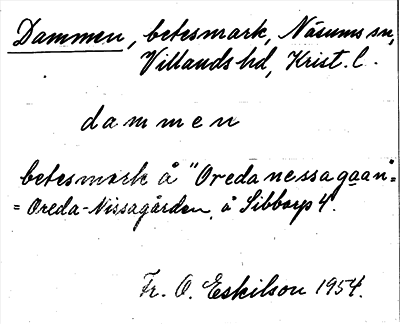 Dammen, betesmark, Näsums sn,
Villands hd, Krist. l.
dammen
betesmark å "Oredanessagaan"
= Oreda-Nissagården, å Sibborp 4.
Fr. O. Eskilson 1954.